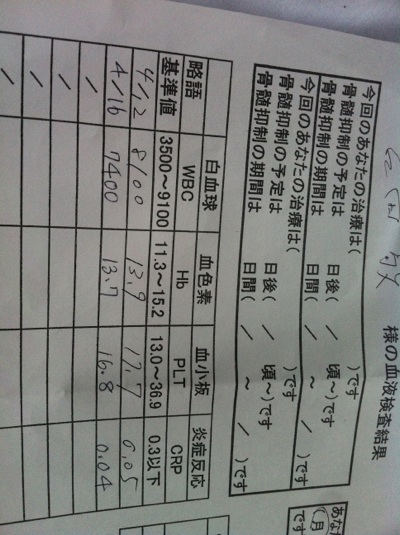 様の血液検査結果
今回のあなたの治療は( )です
骨髄抑制の予定は 日後( / 頃~)です
骨髄抑制の期間は 日間( / ~ / )です
今回のあなたの治療は( )です
骨髄抑制の予定は 日後( / 頃~)です
骨髄抑制の期間は 日間( / ~ / )です
白血球 血色素 血小板 炎症反応
略語 WBC Hb PLT CRP
基準値 3500~9100 11.3~15.2 13.0~36.9 0.3以下
4/12 8100 13.9 17.7 0.05
4/16 7400 13.7 16.8 0.04
/
/
/
/
あなた
(月
です